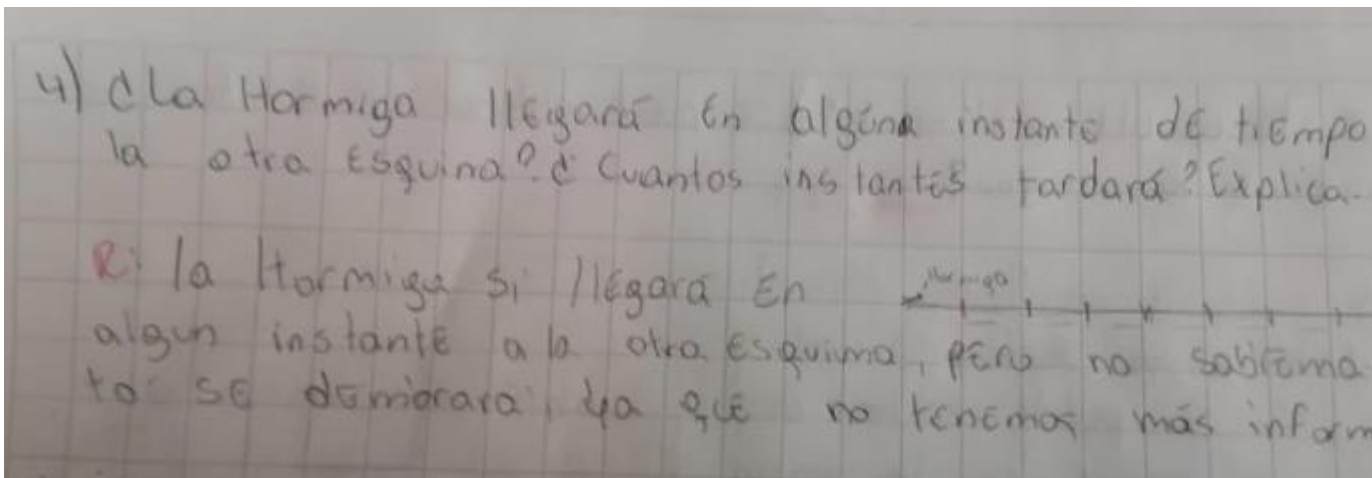 4) ¿La Hormiga llegará en alguna instante de tiempo
la otra Esquina? ¿Cuantos instantes tardará? Explica.
R: la Hormiga si llegará En
Hormiga
algun instante a la otra esquina, pero no sabrema
to se demorara, ya que no tenemos más inform